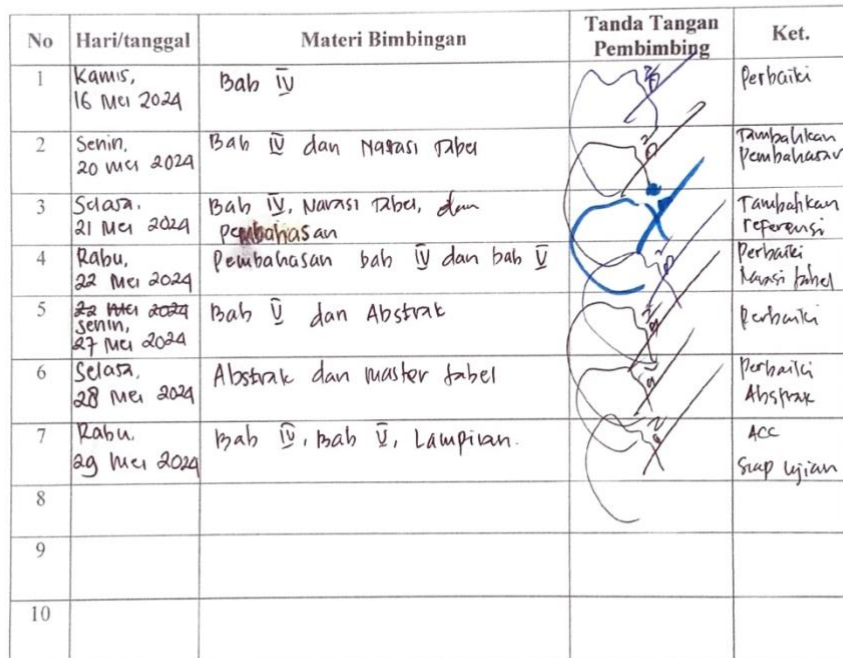 No Hari/tanggal Materi Bimbingan Tanda Tangan Pembimbing Ket.
1 Kamis, 16 Mei 2024 Bab IV Perbaiki
2 Senin, 20 Mei 2024 Bab IV dan Narasi Tabel Tambahkan Pembahasan
3 Selasa, 21 Mei 2024 Bab IV, Narasi Tabel, dan Pembahasan Tambahkan referensi
4 Rabu, 22 Mei 2024 Pembahasan bab IV dan bab V Perbaiki Narasi tabel
5 22 Mei 2024 Senin, 27 Mei 2024 Bab V dan Abstrak Perbaiki
6 Selasa, 28 Mei 2024 Abstrak dan master tabel Perbaiki Abstrak
7 Rabu, 29 Mei 2024 Bab IV, Bab V, Lampiran. ACC Siap ujian
8
9
10